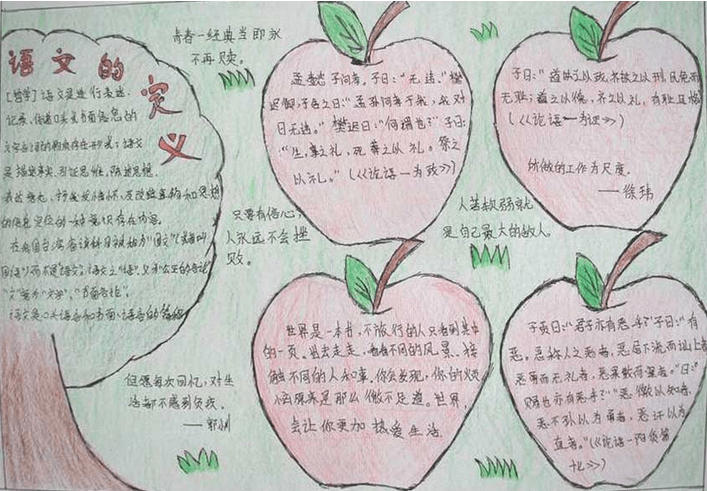 语文的定义
[哲学]语文是进行表述、
记录、传递口头或书面信息的
文字言语的物质存在形式；语文
是描述事实、引证思维、陈述思想、
在我国台湾
语文是口头语言和书面语言的
青春一经典当即永
不再赎。
孟懿子问孝。子曰："无违。"樊
迟御，子告之曰："孟孙问孝于我，我对
曰无违。"樊迟曰："何谓也？"子曰：
"生，事之以礼，死，葬之以礼，祭之
以礼。"(《论语—为政》)
子曰："道之以政，齐之以刑，民免而
无耻；道之以德，齐之以礼，有耻且格。"
(《论语—为政》)
所做的工作为尺度。
——徐玮
只要有信心，
人永远不会挫
败。
人若软弱就
是自己最大的敌人。
但愿每次回忆，对生
活都不感到负疚。
——郭小川
世界是一本书，不旅行的人只看到其中
的一页。出去走走，看看不同的风景、接
触不同的人和事。你会发现，你的烦
恼原来是那么微不足道。世界，
会让你更加热爱生活。
子贡曰："君子亦有恶乎？"子曰："有
恶。恶称人之恶者，恶居下流而讪上者，
恶勇而无礼者，恶果敢而窒者。"曰："
赐也亦有恶乎？""恶徼以为知者，
恶不孙以为勇者，恶讦以为
直者。"(《论语—阳货第
十七》)